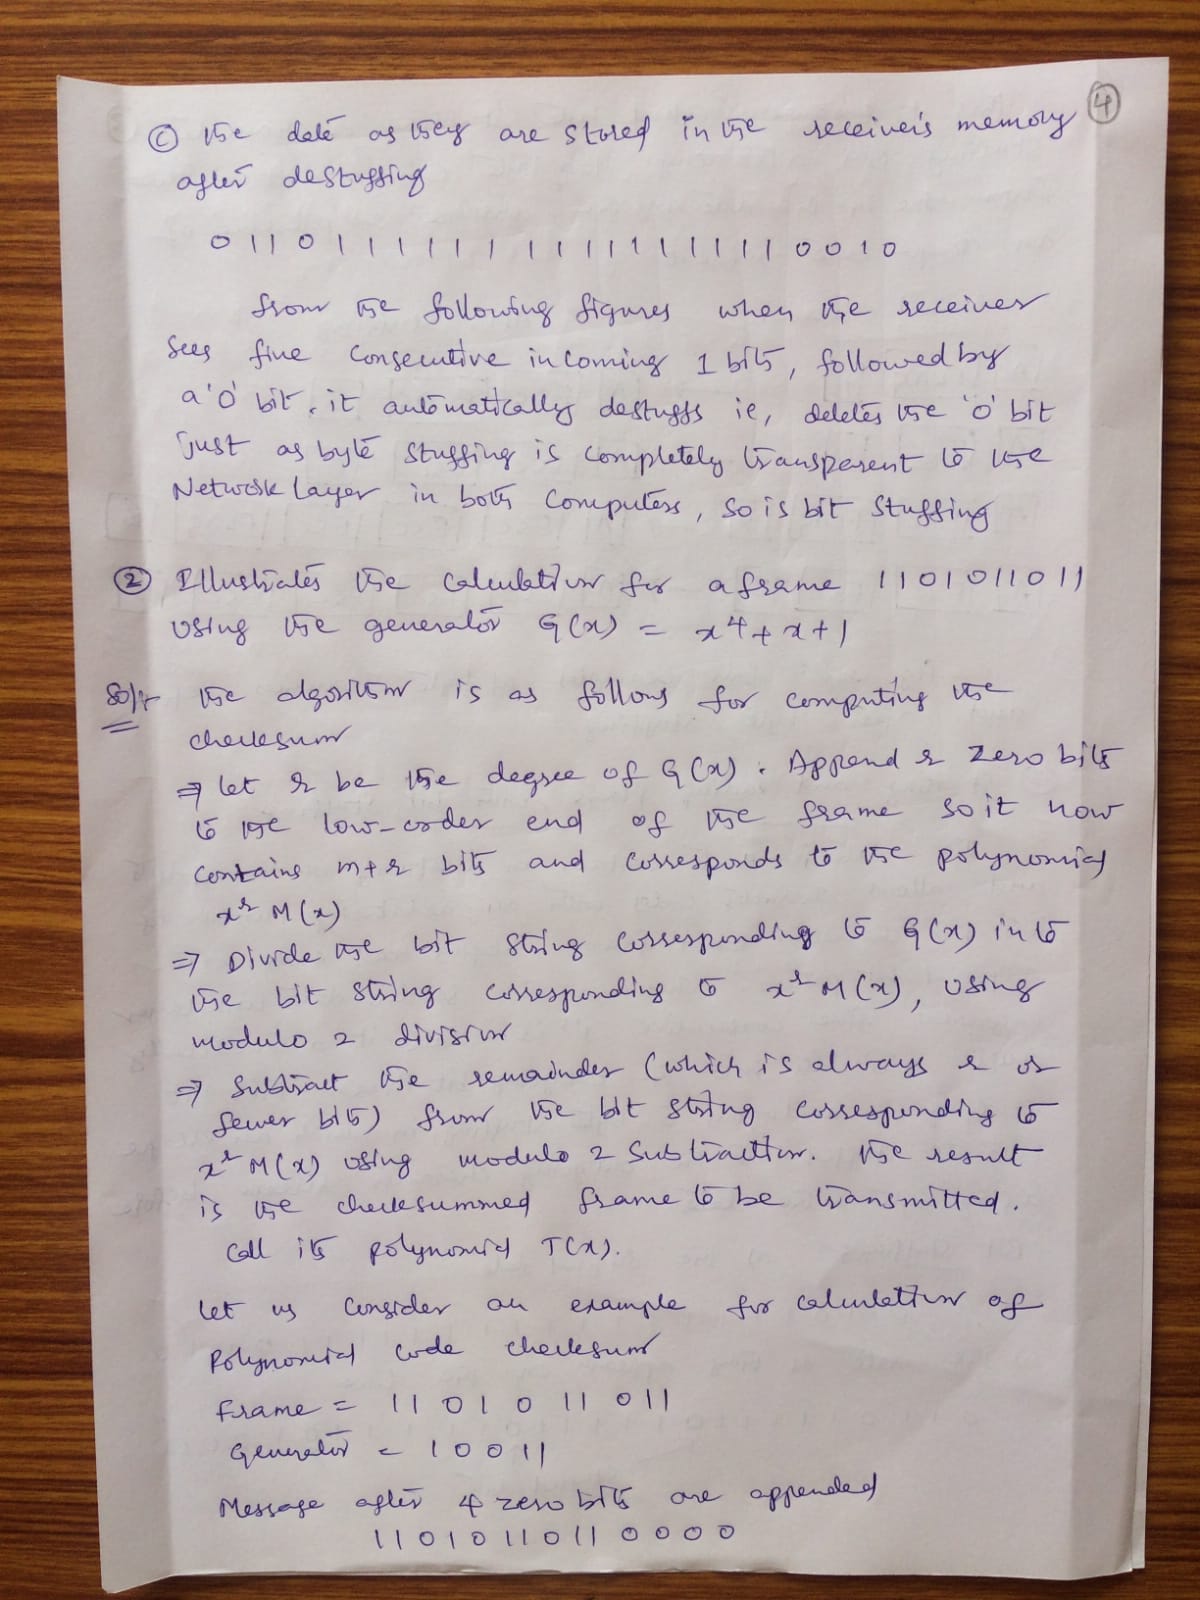 4
c the data as they are stored in the receiver's memory
after destuffing
0 1 1 0 1 1 1 1 1 1 1 1 1 1 1 1 1 1 1 1 0 0 1 0
from the following figures when the receiver
sees five consecutive incoming 1 bits, followed by
a '0' bit, it automatically destuffs ie, deletes the '0' bit
just as byte stuffing is completely transparent to the
Network Layer in both computers, so is bit stuffing
2 Illustrates the calculation for a frame 1101011011
using the generator G(x) = x⁴ + x + 1
Soln the algorithm is as follows for computing the
checksum
⇒ Let r be the degree of G(x). Append r zero bits
to the low-order end of the frame so it now
contains m+r bits and corresponds to the polynomial
xʳ M(x)
⇒ Divide the bit string corresponding to G(x) in to
the bit string corresponding to xʳ M(x), using
modulo 2 division
⇒ Subtract the remainder (which is always r or
fewer bits) from the bit string corresponding to
xʳ M(x) using modulo 2 Subtraction. the result
is the checksummed frame to be transmitted.
Call its polynomial T(x).
Let us consider an example for calculation of
Polynomial code checksum
Frame = 1 1 0 1 0 1 1 0 1 1
Generator = 1 0 0 1 1
Message after 4 zero bits are appended
1 1 0 1 0 1 1 0 1 1 0 0 0 0